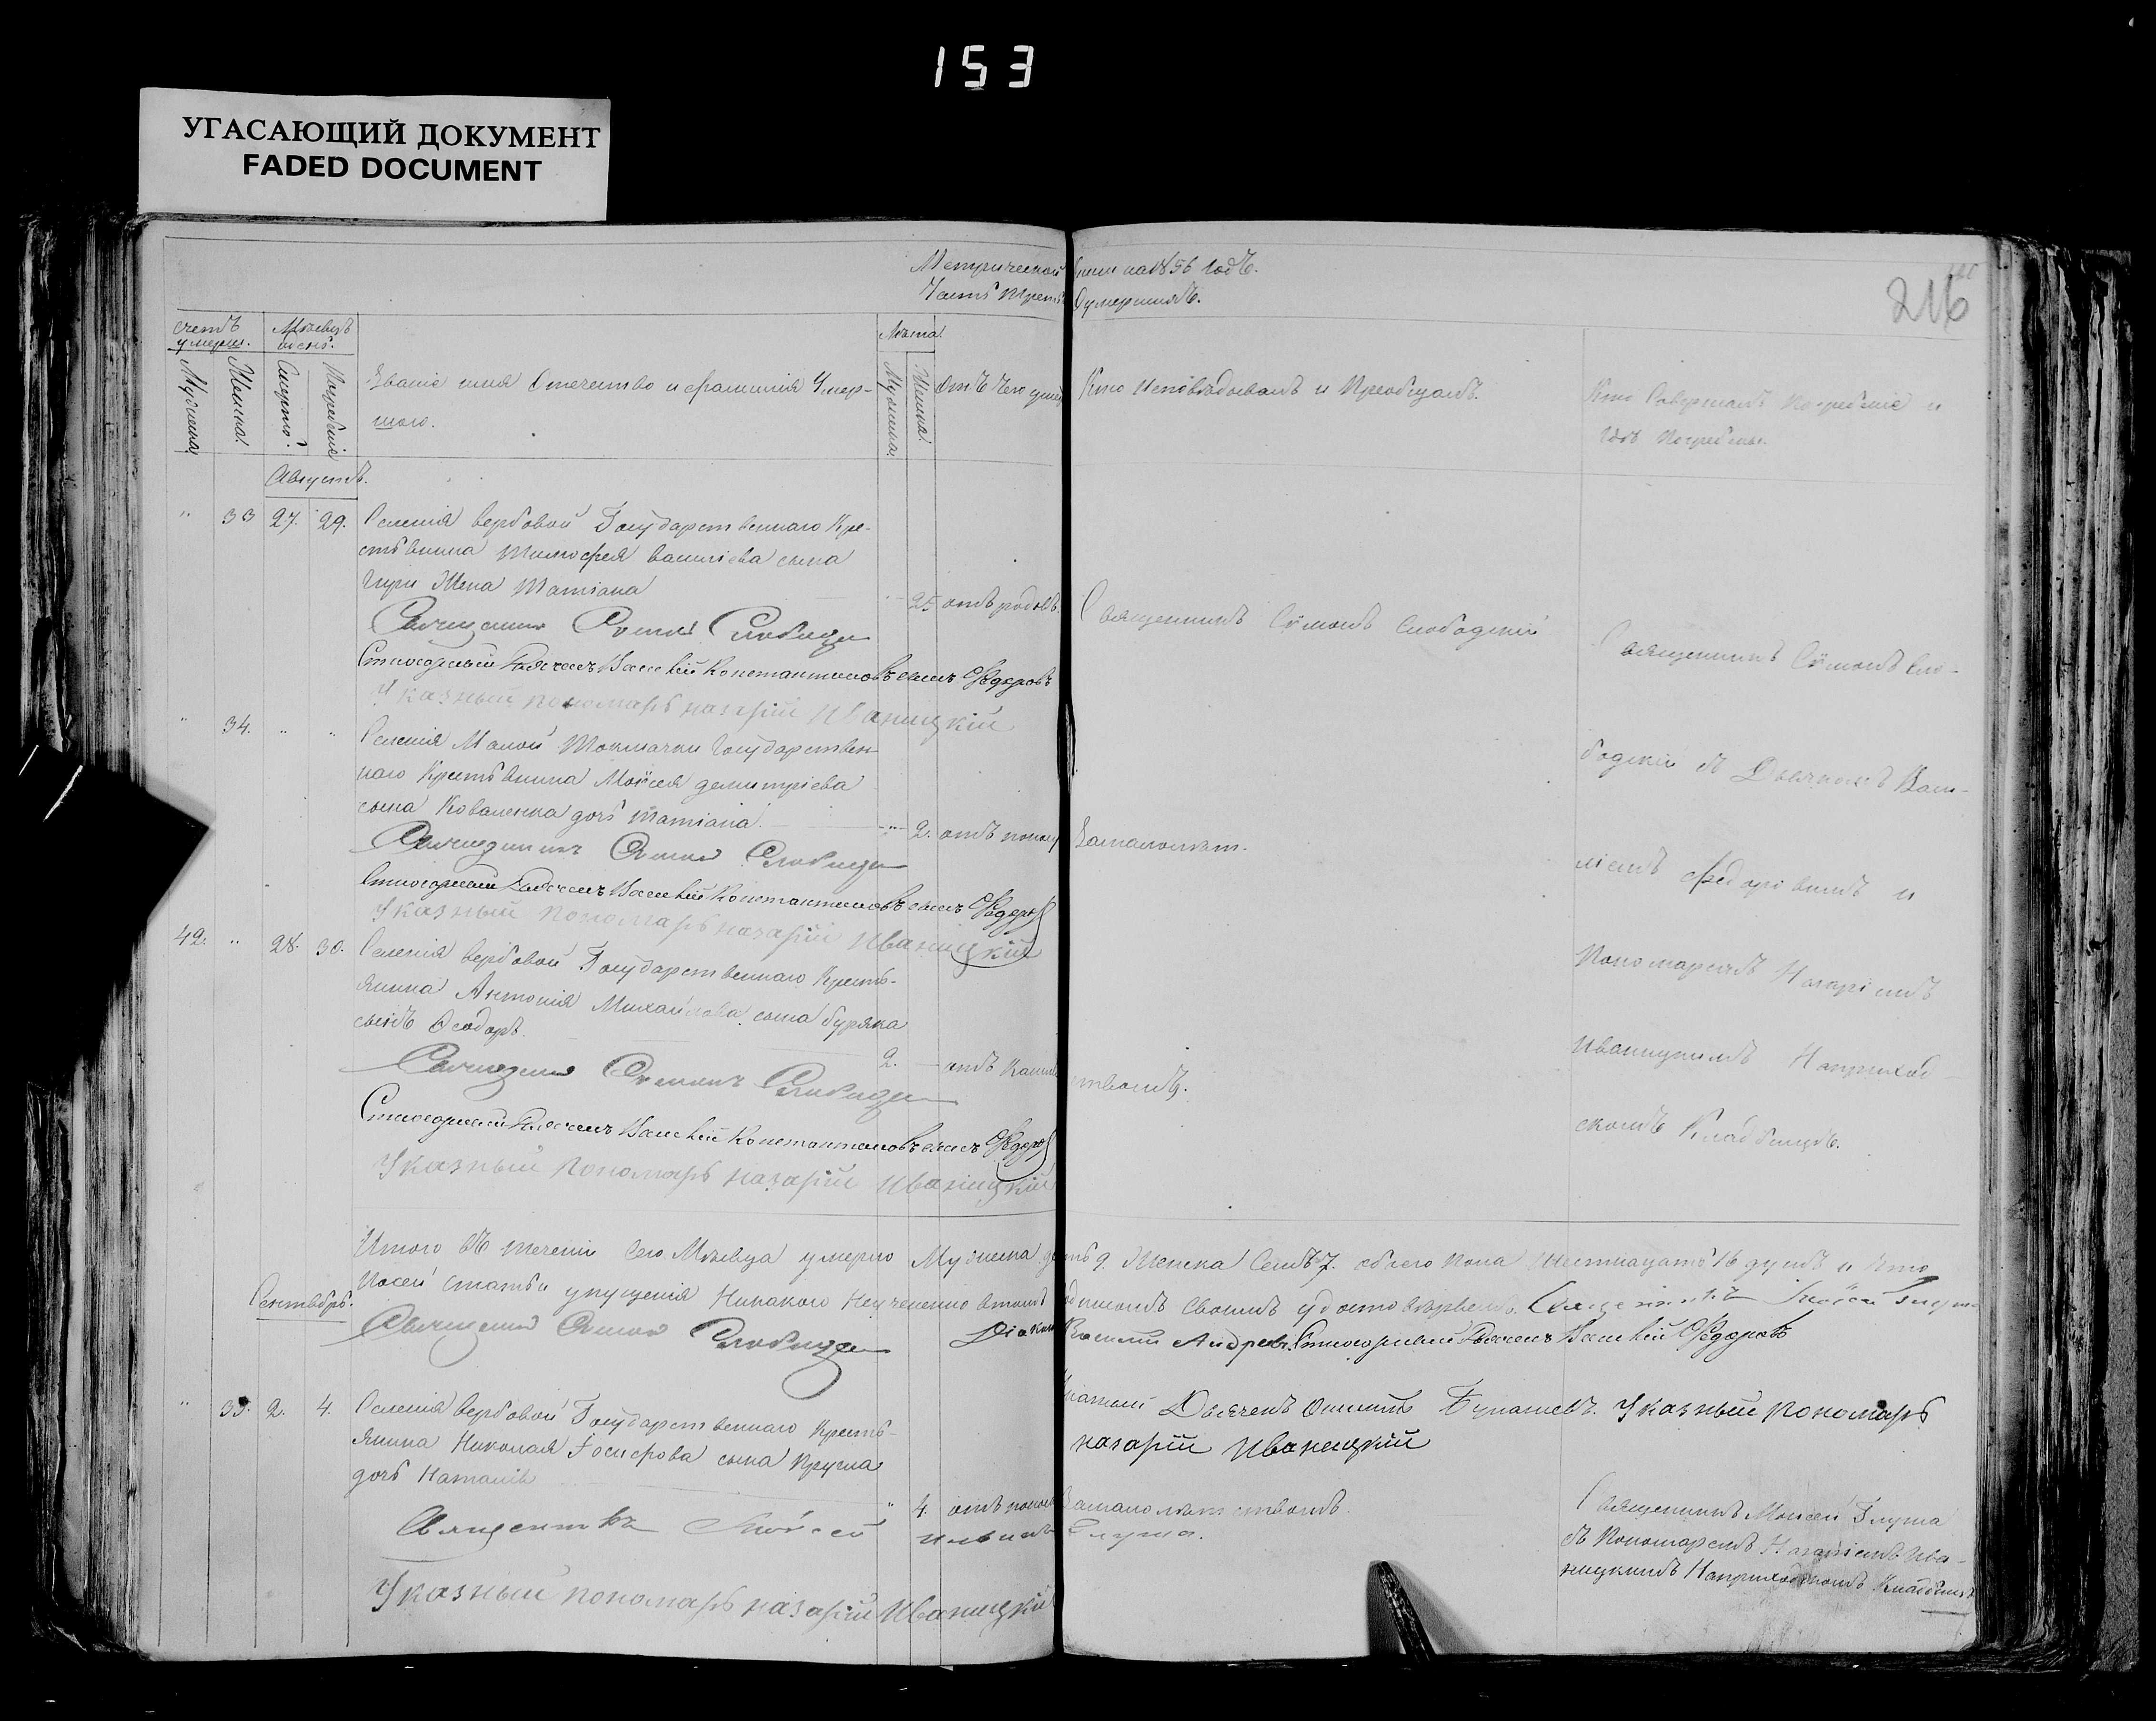 153
УГАСАЮЩИЙ ДОКУМЕНТ
FADED DOCUMENT
Метрической книги на 1856 годъ.
Часть третья о умершихъ.
216
счетъ умерш.
Мѣсяцъ и день.
Мужеска
Женска
Смерти
Погребенія
Званіе имя Отечество и фамилія Умер-
шого.
Лѣта
Мужеска
Женска
Отъ чего умер
Кто Исповѣдывалъ и Пріобщалъ.
Кто Совершалъ Погребеніе и
Гдѣ Погребены.
Августъ.
" 33 27. 29. Селенія вербовой Государственнаго Кре-
стьянина Тимофея василіева сына
Жена Татіана
25 отъ родовъ.
Священникъ Симонъ Слободскій
Священникъ Симонъ Сло-
бодскій съ Дьячкомъ Васи-
ліемъ Федоровымъ и
Пономаремъ Назаріемъ
Иваницкимъ На приход-
скомъ Кладбищѣ.
Священникъ Симонъ Слободскій
Стихарный Дьячекъ Василій Константиновъ сынъ Федоровъ
Указный пономарь назарій иваницкій
" 34. " " Селенія Малой Токмачки Государствен-
наго Крестьянина Моисея димитріева
сына Коваленка дочь татіана.
" 2. отъ поносу
За малолѣт.
Священникъ Симонъ Слободскій
Стихарный Дьячекъ Василій Константиновъ сынъ Федоровъ
Указный пономарь назарій иваницкій
42. " 28. 30. Селенія вербовой Государственнаго Кресть-
янина Антонія Михайлова сына буряка
сынъ Феодоръ.
2. отъ Кашля
Священникъ Симонъ Слободскій
Стихарный Дьячекъ Василій Константиновъ сынъ Федоровъ
Указный пономарь назарій иваницкій
Итого въ теченіи Сего Мѣсяца умерло Мужеска девять 9. Женска Семь 7. обоего пола шестнацать 16 душъ и что
по сей статьи упущенія Никакого Неучинено втомъ подписомъ своимъ удостовѣряемъ. Священникъ Моисей Глума
Священникъ Симонъ Слободскій Діаконъ Василій Андреевъ Стихарный Дьячекъ Василій Федоровъ
Дьячекъ Указный пономарь
назарій иваницкій
Сентябрь.
" 35. 2. 4. Селенія вербовой Государственнаго Кресть-
янина Николая Іосифова сына
дочь Наталія
" 4. отъ поноса
За малолѣтствомъ.
Священникъ Моисей Глума
съ Пономаремъ Назаріемъ Ива-
ницкимъ На приходскомъ Кладбищѣ
Священникъ Моисей Глума.
Указный пономарь назарій иваницкій